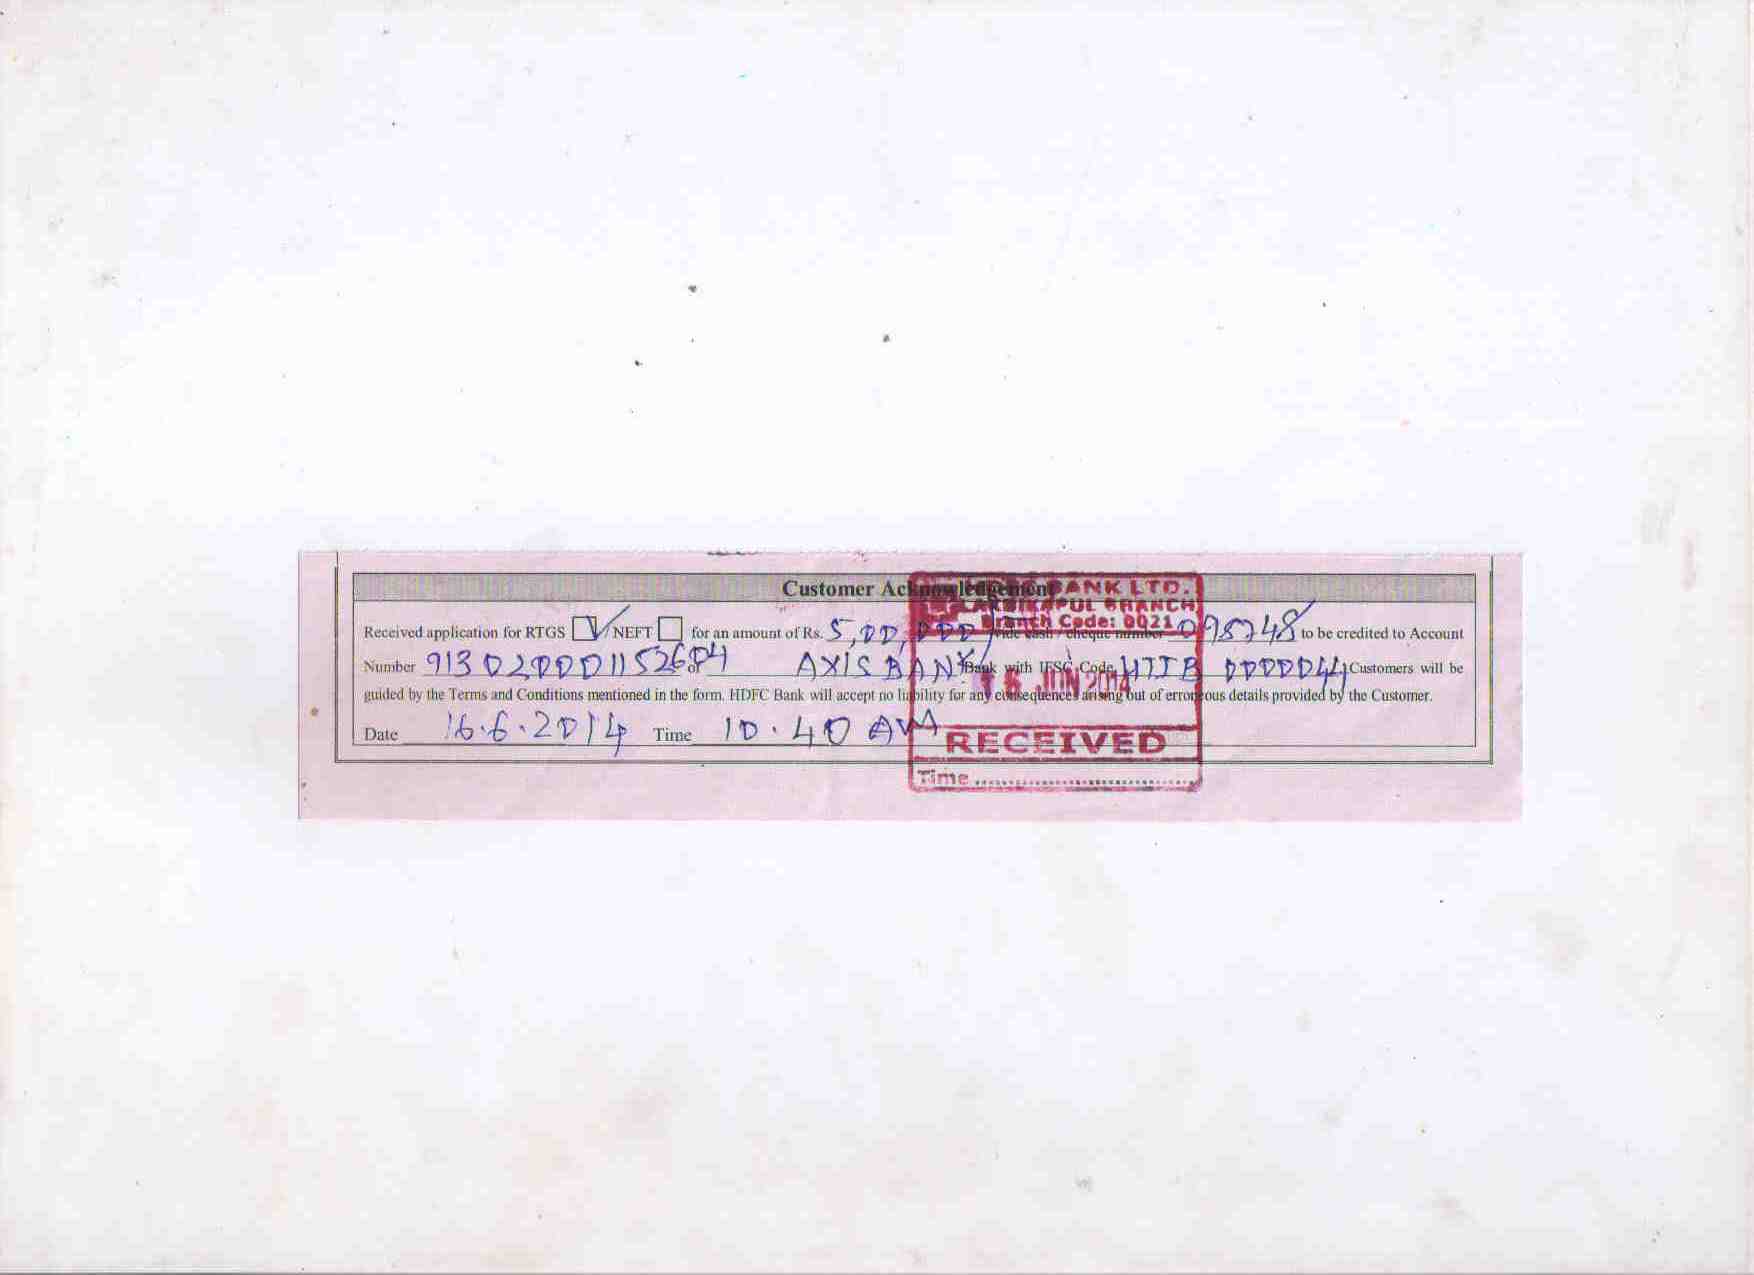 Customer Acknowledgement
Received application for RTGS ✓ NEFT for an amount of Rs. 5,00,000/ vide cash / cheque number 095748 to be credited to Account
Number 913020001152604 of AXIS BANK Bank with IFSC Code Customers will be
guided by the Terms and Conditions mentioned in the form. HDFC Bank will accept no liability for any consequences arising out of erroneous details provided by the Customer.
Date 16.6.2014 Time 10.40 AM
BANK LTD.
LAKDIKAPUL BRANCH
Branch Code: 0021
16 JUN 2014
RECEIVED
Time